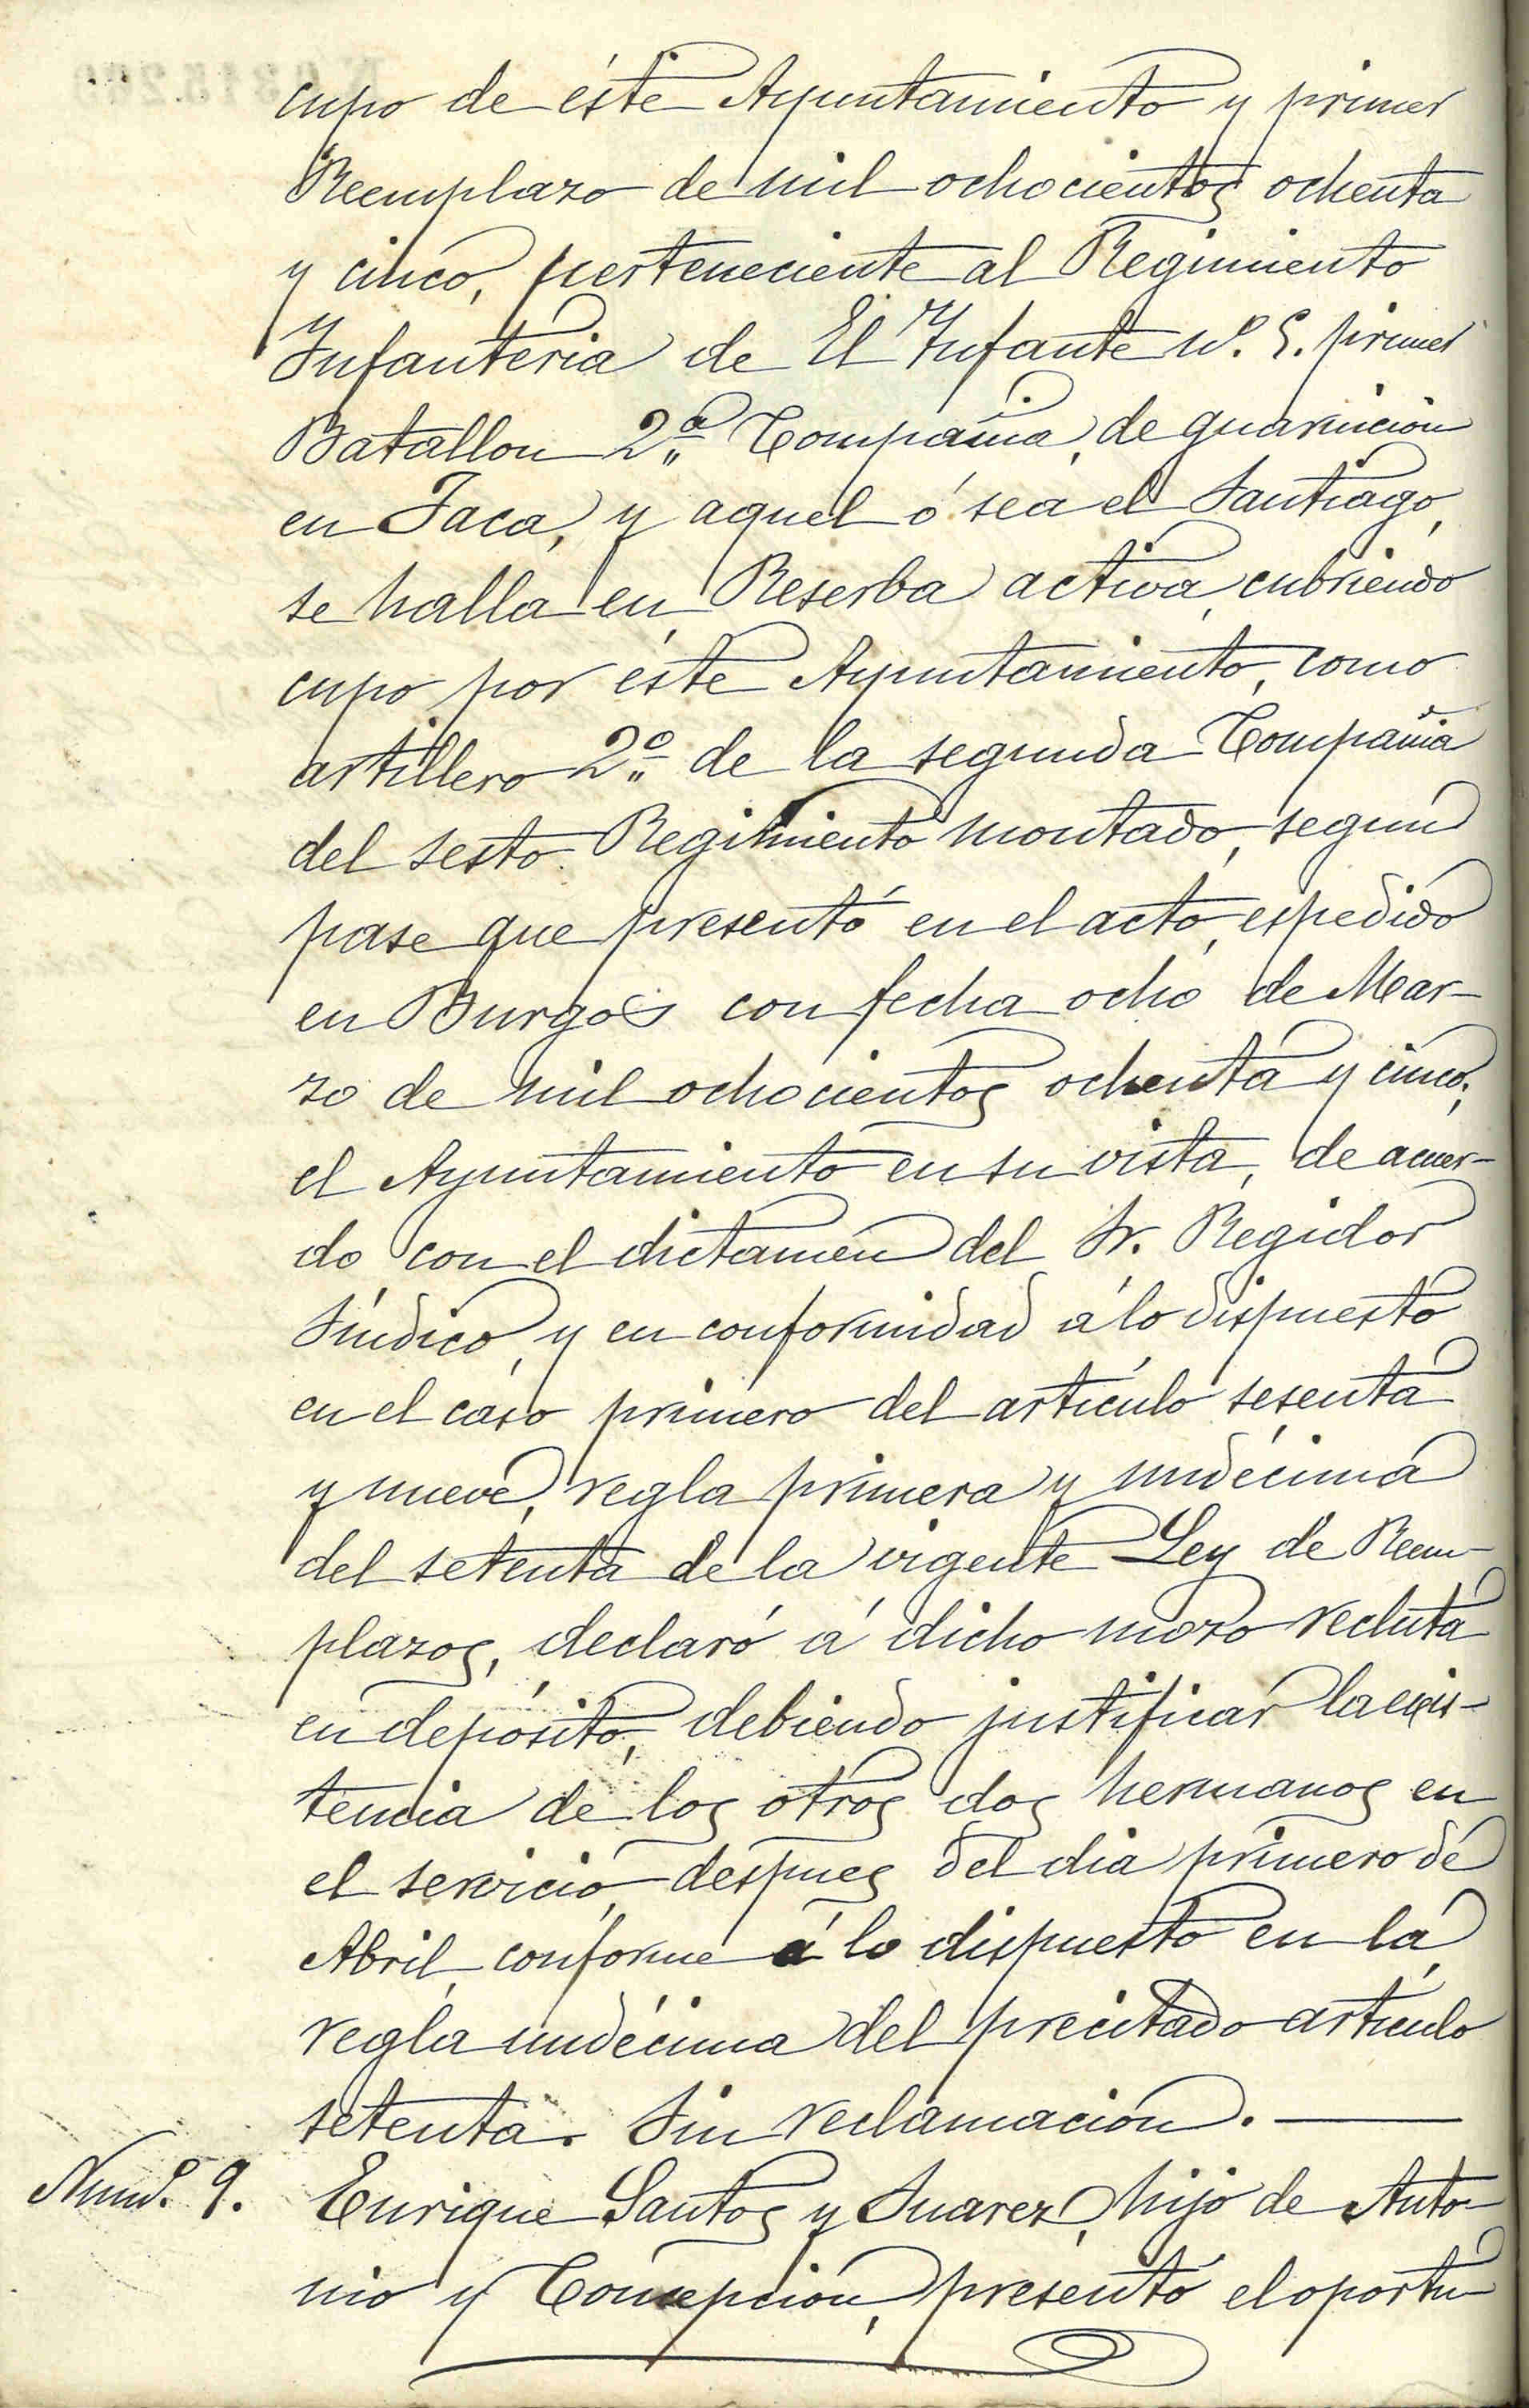 cupo de éste Ayuntamiento y primer
Reemplazo de mil ochocientos ochenta
y cinco, perteneciente al Regimiento
Infanteria de El Infante nº. 5. primer
Batallon 2.ª Compañia, de guarnicion
en Jaca, y aquel ó sea el Santiago,
se halla en Reserba activa, cubriendo
cupo por éste Ayuntamiento, como
artillero 2.º de la segunda Compañia
del sesto Regimiento montado, segun
pase que presentó en el acto, espedido
en Burgos con fecha ocho de Mar-
zo de mil ochocientos ochenta y cinco;
el Ayuntamiento en su vista, de acuer-
do con el dictamen del Sr. Regidor
Síndico, y en conformidad á lo dispuesto
en el caso primero del artículo sesenta
y nueve, regla primera y undécima
del setenta de la vigente Ley de Reem-
plazos, declaró á dicho mozo recluta
en depósito, debiendo justificar la exis-
tencia de los otros dos hermanos en
el servicio, despues del dia primero de
Abril, conforme á lo dispuesto en la
regla undécima del precitado artículo
setenta. Sin reclamación.
Numº. 9. Enrique Santos y Suarez, hijo de Anto-
nio y Concepción, presentó el oportu-